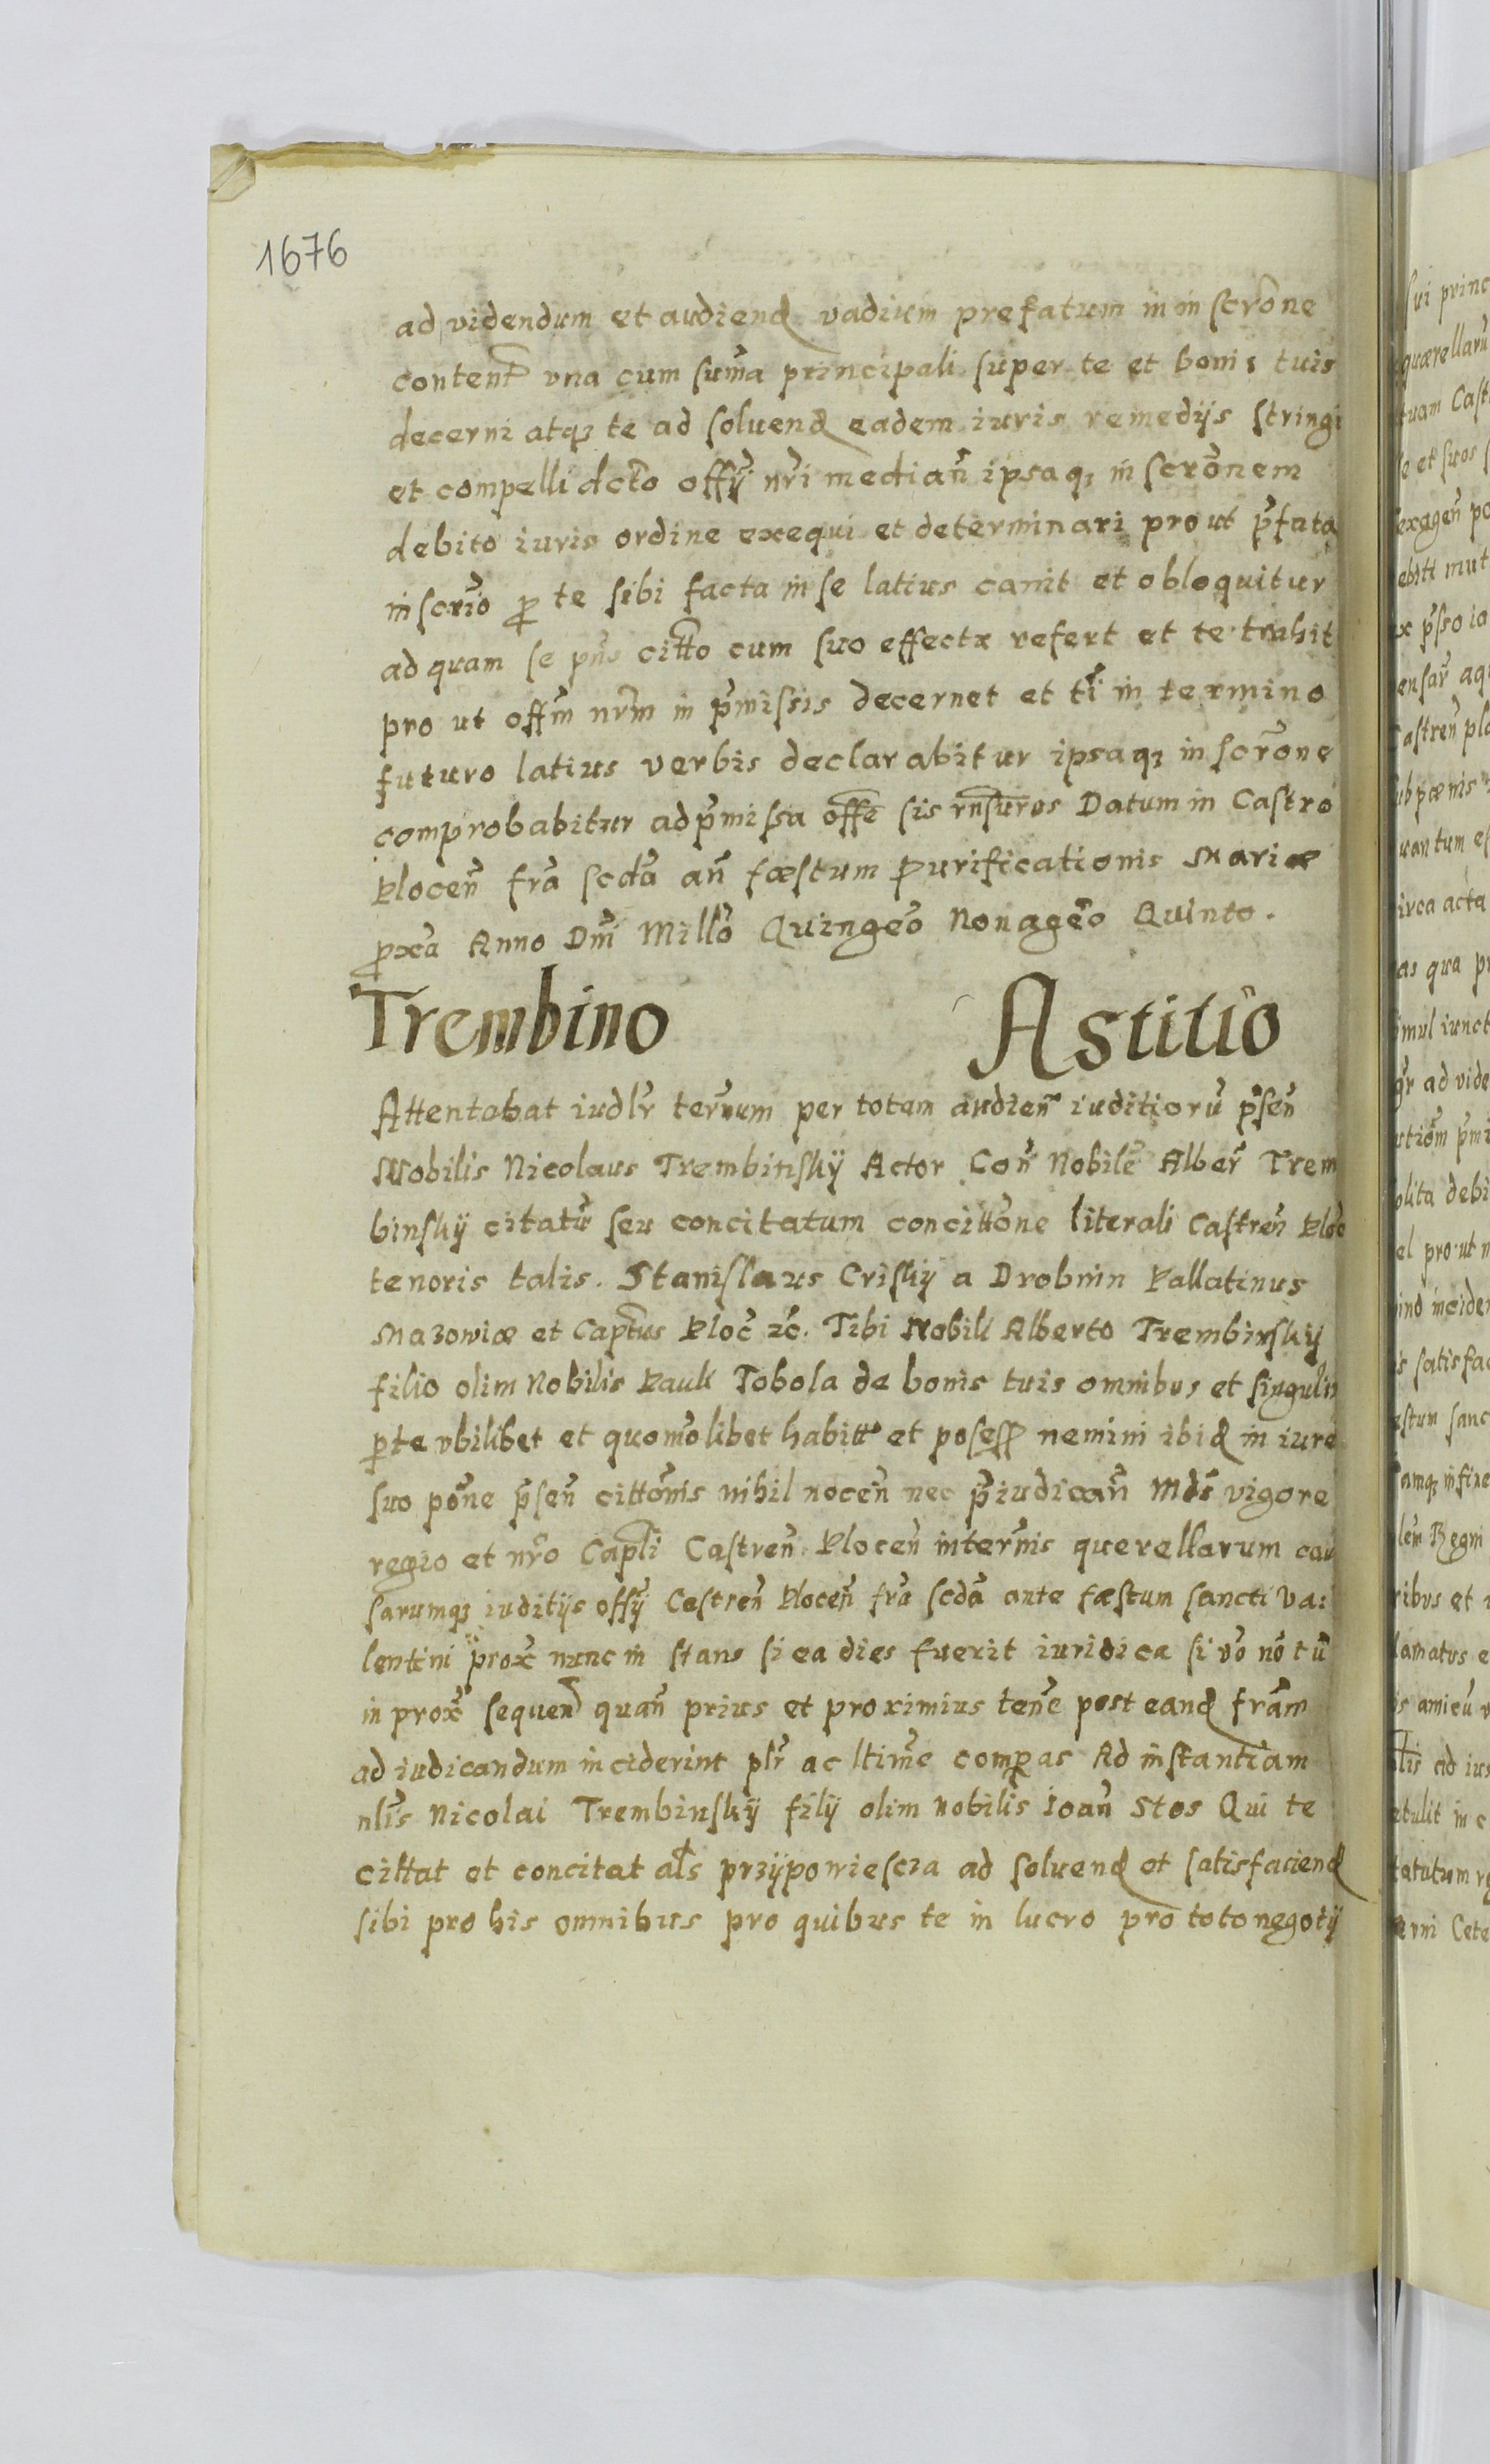 1676
ad videndum et audiend vadium prefatum in inscrone
content una cum suma principali super te et bonis tuis
decerni atqz te ad soluend eadem iuris remedijs stringi
et compelli dcto offy nri median ipsaqz inscronem
debito iuris ordine exequi et determinari prout pfata
inscrio p te sibi facta in se latius canit et obloquitur
ad quam se pns citto cum suo effecta refert et te trahit
pro ut offm nrm in pmissis decernet et ti in termino
futuro latius verbis declarabitur ipsaqz inscrone
comprobabitur ad pmissa offe sis rnsurus Datum in Castro
Plocen fra scda an fæstum Purificationis Mariæ
pxa Anno Dni Millo Quingeo Nonageo Quinto.
Trembino Astitio
Attentabat iudlr ternum per totam audien iuditioru psen
Nobilis Nicolaus Trembinskÿ Actor Con Nobile Alber Trem
binskÿ citatu seu concitatum concittone literali Castren Ploc
tenoris talis. Stanislaus Criskÿ a Drobnin Pallatinus
Mazowiæ et Captus Ploc zc. Tibi Nobili Alberto Trembinskÿ
filio olim Nobilis Pauli Tobola de bonis tuis omnibus et singulis
p te ubilibet et quomolibet habitt et posess nemini ibid in iure
suo pone psen cittonis nihil nocen nec piudican Mds vigore
regio et nro Capli Castren Plocen internis querellarum cau
sarumqz iuditijs offy Castren Plocen fra scda ante fæstum sancti Va:
lentini prox nunc instans si ea dies fuerit iuridica si vo no tu
in prox sequen quan prius et proximius tene post eand fram
ad iudicandum inciderint plr ac ltime compas Ad instantiam
nlis Nicolai Trembinskÿ filÿ olim Nobilis Ioan Stos Qui te
cittat et concitat als przÿpowiescza ad soluend et satisfaciend
sibi pro his omnibus pro quibus te in lucro pro toto negotÿ